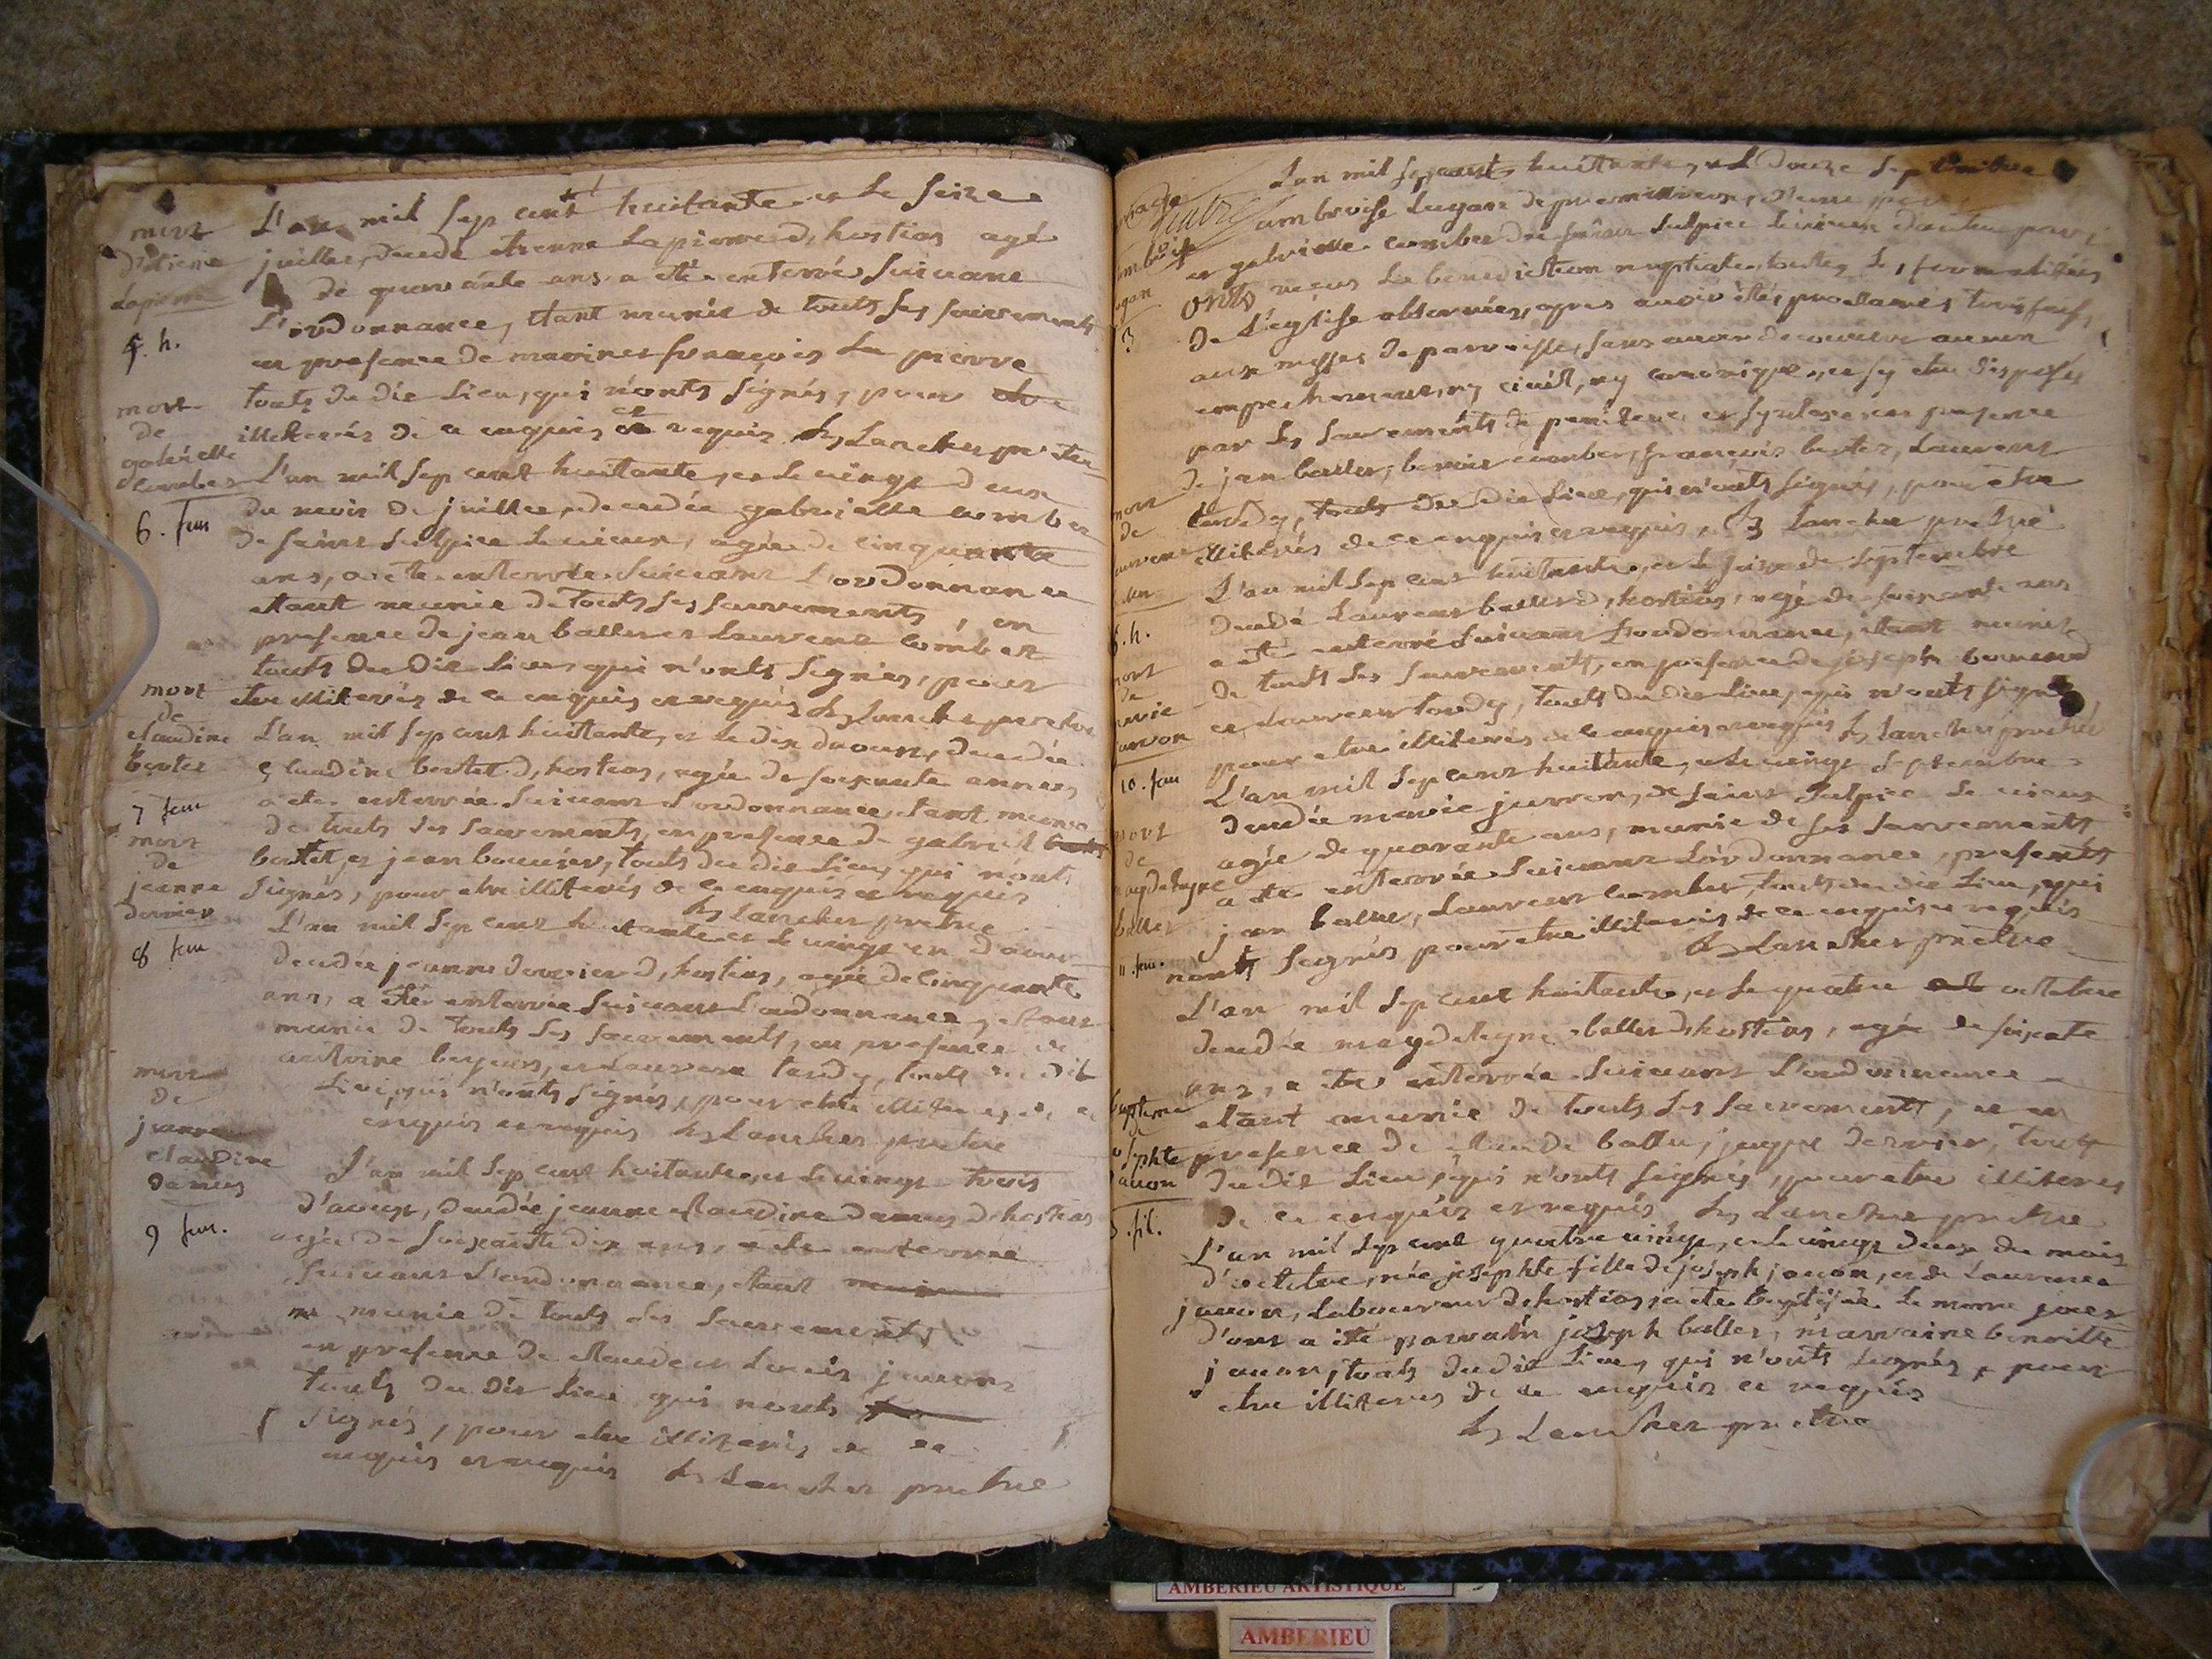 mort
d'etiene
Lapierre
4. h.
L'an mil sept cent huitante et le seize
juillet, decedé etienne Lapierre d, hostias agé
de quarante ans a eté enterré suivant
L'ordonnance, etant munis de touts ses sacrements
en presence de françois La pierre
touts du dit Lieu, qui n'onts signés, pour etre
illiterés de ce enquis et requis Lancher pretre
mort
de
gabrielle
comber
6. fem
L'an mil sept cent huittante, et le vingt deux
du mois de juillet, decedée gabrielle comber
de saint sulpice Le vieux, agée de cinquante
ans, a ete enterrée suivant L'ordonnance
etant munie de touts ses sacrements, en
presence de jean ballet et Laurent comber
touts du dit Lieu qui n'onts signés, pour
etre illiterés de ce enquis et requis Lancher pretre
mort
de
claudine
bertet
7 fem
L'an mil sept cent huittante, et le dix daoust, decedée
claudine bertet d, hostias, agée de soixante années
a ete enterrée suivant L'ordonnance, etant munie
de touts ses sacrements, en presence de gabriel
bertet, et jean bouvier, touts du dit Lieu, qui n'onts
signés, pour etre illiterés de ce enquis et requis
Lancher pretre
mort
de
jeanne
dernier
8 fem
L'an mil sept cent huitante et le vingt un d'aoust
decedée jeanne dernier d, hostias, agée de cinquante
ans, a eté enterrée suivant L'ordonnance, etant
munie de touts ses sacrements, en presence de
antoine, et Laurent tardy, touts du dit
Lieu, qui n'onts signés, pour etre illiterés de ce
enquis et requis Lancher pretre
mort
de
jeanne
claudine
damas
9 fem.
L'an mil sept cent huitante, et le vingt trois
d'aoust, decedée jeanne claudine damas d hostias
agée de soixante dix ans, a ete enterrée
suivant L'ordonnance, etant
munie de touts ses sacrements
en presence de claude et Louis javon
touts du dit Lieu qui n'onts
signés, pour etre illiterés de ce
enquis et requis Lancher pretre
L'an mil sept cent huittante, et le douze septembre
ambroise Lugan de, d'une part,
et gabrielle comber de saint sulpice Le vieux d'autre part,
onts reçus La benediction nuptiale, toutes Les formalités
de L'eglise observées, apres avoir etés proclamés trois fois,
aux messes de paroisse, sans avoir decouvert aucun
empechement, ny civil, ny canonique, et s'y etre disposés
par Les sacrements de penitence et en presence
de jean ballet, benoit comber, françois bertet, Laurent
tardy, touts du dit Lieu, qui n'onts signés, pour etre
illiterés de ce enquis et requis, Lancher pretre
mort
de
6. h.
L'an mil sept cent huitante, et le seize de septembre
decedé Laurent ballet d, hostias, agé de soixante ans
a eté enterré suivant L'ordonnance, etant munis
de touts Les sacrements, en presence de joseph
et Laurent tardy, touts du dit Lieu, qui n'onts signés
pour etre illiterés de ce enquis et requis Lancher pretre
mort
de
marie
10. fem
L'an mil sept cent huitante, et le vingt septembre
decedée marie, de saint sulpice Le vieux
agée de quarante ans, munie de ses sacrements
a ete enterrée suivant L'ordonnance, presents
jean ballet, Laurent comber, touts du dit Lieu, qui
n'onts signés pour etre illiterés de ce enquis et requis
Lancher pretre
mort
de
magdelegne
ballet
11. fem.
L'an mil sept cent huitante, et le quatre octobre
decedée magdelegne ballet d hostias, agée de soixante
ans, a eté enterrée suivant L'ordonnance
etant munie de touts Les sacrements, et en
presence de claude ballet, jaque dernier, touts
du dit Lieu, qui n'onts signés, pour etre illiterés
de ce enquis et requis Lancher pretre
Bapteme
de
josephte
javon
3. fil.
L'an mil sept cent quatre vingt, et le vingt deux du mois
d'octobre, née josephte fille de joseph javon, et de Laurence
javon, Laboureur d hostias, a ete baptisée Le meme jour
d'ont a eté parrain joseph ballet, marraine benoitte
javon, touts du dit Lieu, qui n'onts signés, pour
etre illiterés de ce enquis et requis
Lancher pretre
AMBERIEU ARTISTIQUE
AMBERIEU